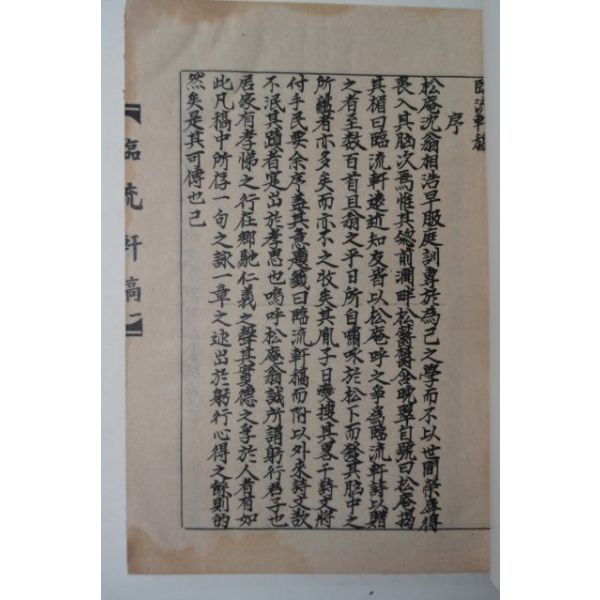 臨流軒稿
序
松庵沈翁相浩早服庭訓專於為己之學而不以世間榮辱得
喪入其腦次焉惟其窓前澗畔松鬱鬱含晚翠自號曰松庵揭
其楣曰臨流軒遠近知友皆以松庵呼之爭為臨流軒詩以贈
之者至数百首且翁之平日所自嘯咏於松下而發其腦中之
所蘊者亦多矣而亦不之收矣其胤子日 搜其畧干詩文將
付手民要余序盖其意題籤曰臨流軒稿而附以外來詩文欲
不泯其蹟者寔出於孝思也嗚呼松庵翁誠所謂躬行君子也
居家有孝悌之行在鄉馳仁義之聲其實德之孚於人者有如
此凡稿中所存一句之詠一章之述出於躬行心得之餘則的
然矣是其可傳也已
臨流軒稿
一